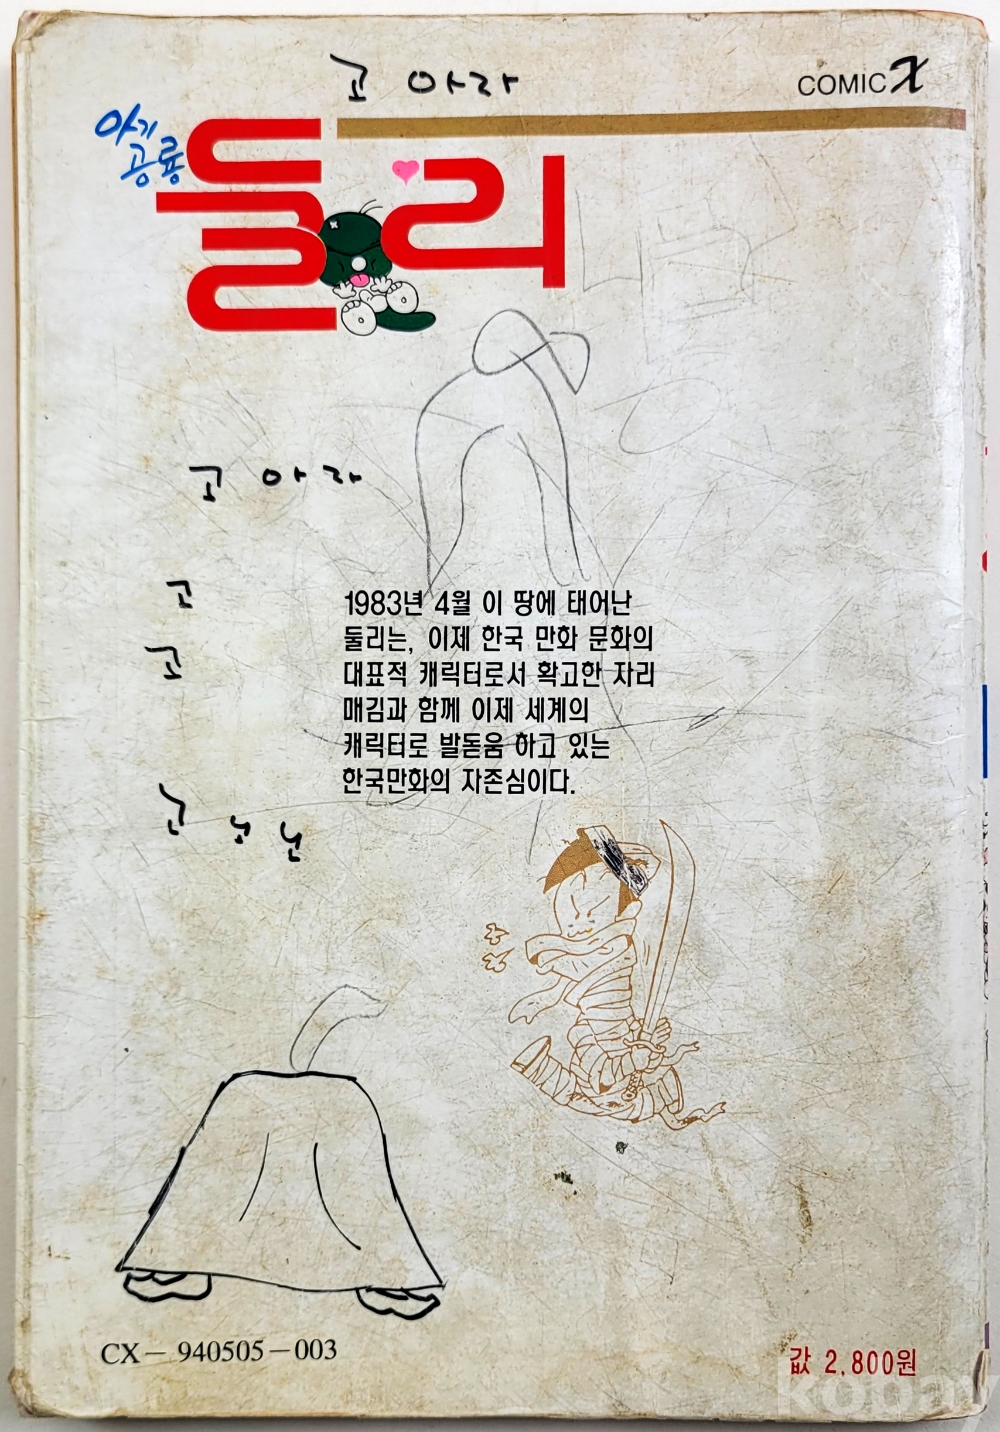 고 아라
COMIC X
아기
공룡
둘리
고 아라
고
고
1983년 4월 이 땅에 태어난
둘리는, 이제 한국 만화 문화의
대표적 캐릭터로서 확고한 자리
매김과 함께 이제 세계의
캐릭터로 발돋움 하고 있는
한국만화의 자존심이다.
고 노 논
CX－ 940505－003
값 2,800원
kobay